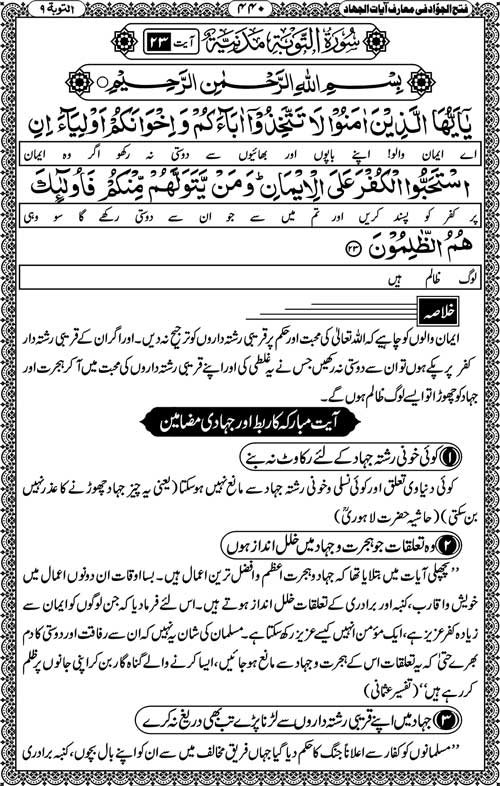 فتح الجوّاد فی معارف آیات الجھاد ۴۴۰ التوبة ۹
سُوْرَةُ التَّوْبَةِ مَدَنِیَّةٌ آیت ۲۳
بِسْمِ اللّٰهِ الرَّحْمٰنِ الرَّحِیْمِ
یٰۤاَیُّهَا الَّذِیْنَ اٰمَنُوْا لَا تَتَّخِذُوْۤا اٰبَآءَكُمْ وَ اِخْوَانَكُمْ اَوْلِیَآءَ اِنِ
اے ایمان والو! اپنے باپوں اور بھائیوں سے دوستی نہ رکھو اگر وہ ایمان
اسْتَحَبُّوا الْكُفْرَ عَلَى الْاِیْمَانِ ؕ وَ مَنْ یَّتَوَلَّهُمْ مِّنْكُمْ فَاُولٰٓىِٕكَ
پر کفر کو پسند کریں اور تم میں سے جو ان سے دوستی رکھے گا سو وہی
هُمُ الظّٰلِمُوْنَ ۲۳
لوگ ظالم ہیں
خلاصہ
ایمان والوں کو چاہیے کہ اللہ تعالیٰ کی محبت اور حکم پر قریبی رشتہ داروں کو ترجیح نہ دیں۔ اور اگر ان کے قریبی رشتہ دار
کفر پر پکے ہوں تو ان سے دوستی نہ رکھیں جس نے یہ غلطی کی اور اپنے قریبی رشتہ داروں کی محبت میں آ کر ہجرت اور
جہاد کو چھوڑا تو ایسے لوگ ظالم ہوں گے۔
آیت مبارکہ کا ربط اور جہادی مضامین
۱ کوئی خونی رشتہ جہاد کے لئے رکاوٹ نہ بنے
کوئی دنیاوی تعلق اور کوئی نسلی و خونی رشتہ جہاد سے مانع نہیں ہو سکتا (یعنی یہ چیز جہاد چھوڑنے کا عذر نہیں
بن سکتی) (حاشیہ حضرت لاہوریؒ)
۲ وہ تعلقات جو ہجرت و جہاد میں خلل انداز ہوں
’’پچھلی آیات میں بتلایا تھا کہ جہاد و ہجرت اعظم و افضل ترین اعمال ہیں۔ بسا اوقات ان دونوں اعمال میں
خویش و اقارب، کنبہ اور برادری کے تعلقات خلل انداز ہوتے ہیں۔ اس لئے فرما دیا کہ جن لوگوں کو ایمان سے
زیادہ کفر عزیز ہے، ایک مؤمن انہیں کیسے عزیز رکھ سکتا ہے۔ مسلمان کی شان یہ نہیں کہ ان سے رفاقت اور دوستی کا دم
بھرے حتیٰ کہ یہ تعلقات اس کے ہجرت و جہاد سے مانع ہو جائیں، ایسا کرنے والے گناہ گار بن کر اپنی جانوں پر ظلم
کر رہے ہیں‘‘ (تفسیر عثمانی)
۳ جہاد میں اپنے قریبی رشتہ داروں سے لڑنا پڑے تب بھی دریغ نہ کرے
’’مسلمانوں کو کفار سے اعلاناً جنگ کا حکم دیا گیا جہاں فریق مخالف میں سے ان کو اپنے بال بچوں، کنبہ برادری